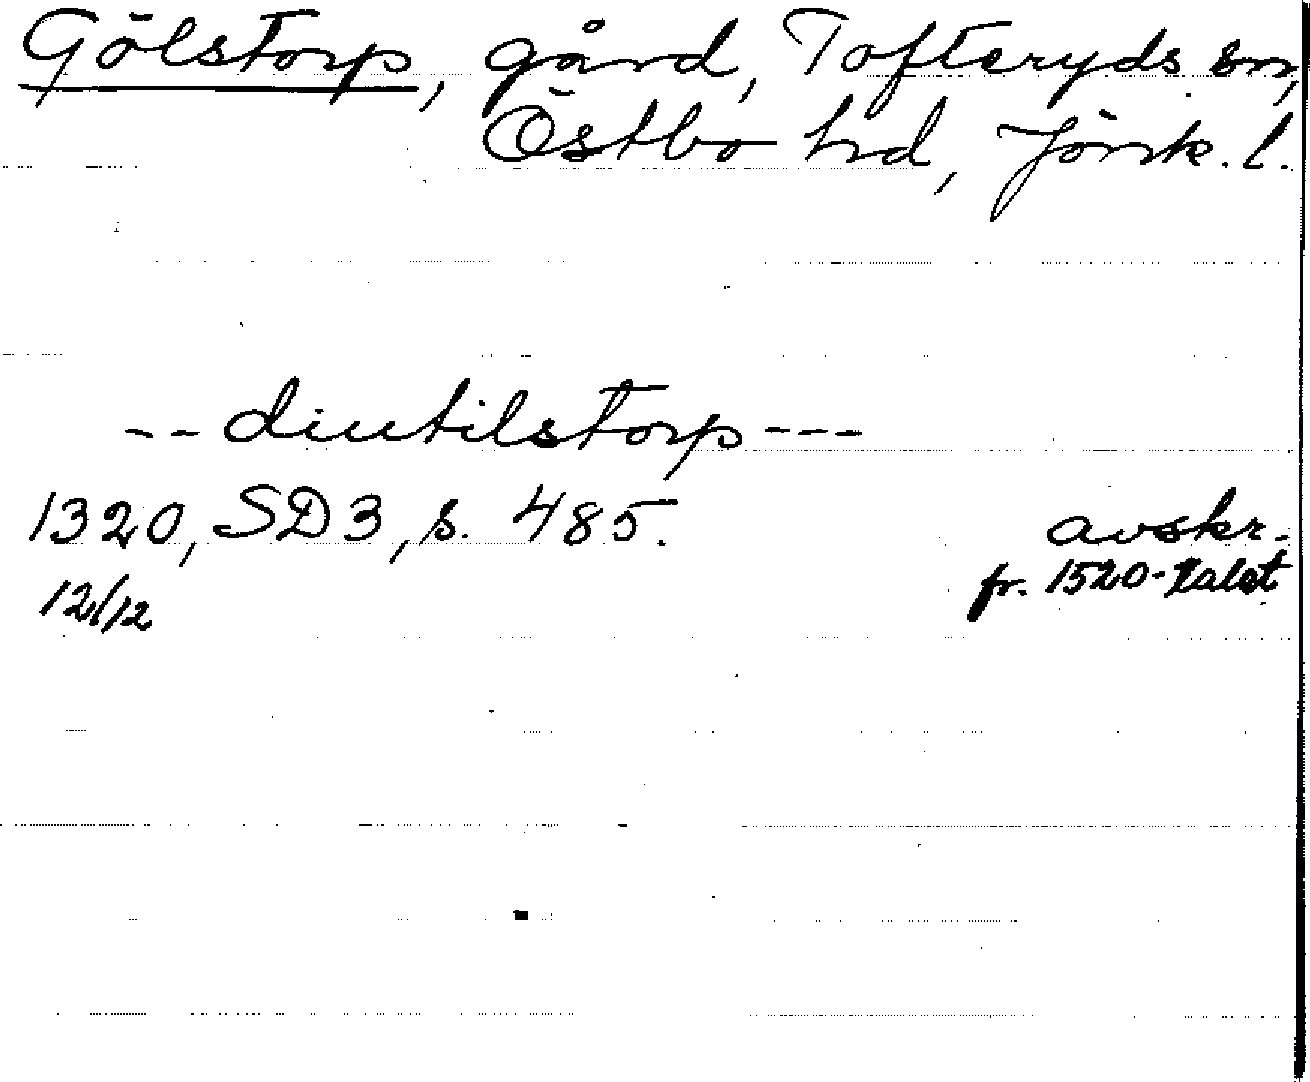 Gölstorp, gård, Tofteryds sn,
Östbo hd, Jönk. l.
-- diutilstorp ---
1320, SD3, s. 485.
12/12
avskr.
fr. 1520-talet